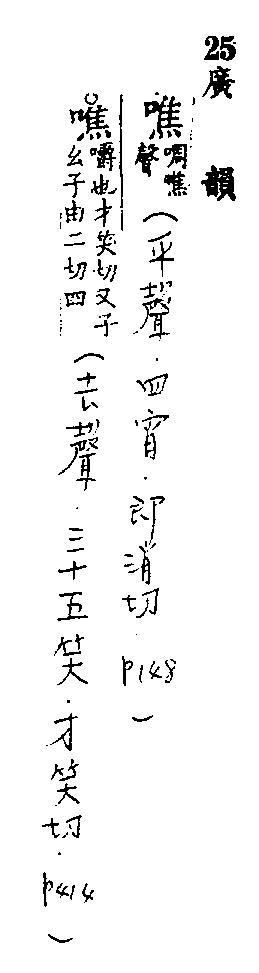 25廣韻
噍啁噍聲（平聲．四宵．即消切．P148）
噍嚼也才笑切又子幺子由二切四（去聲．三十五笑．才笑切．P414）